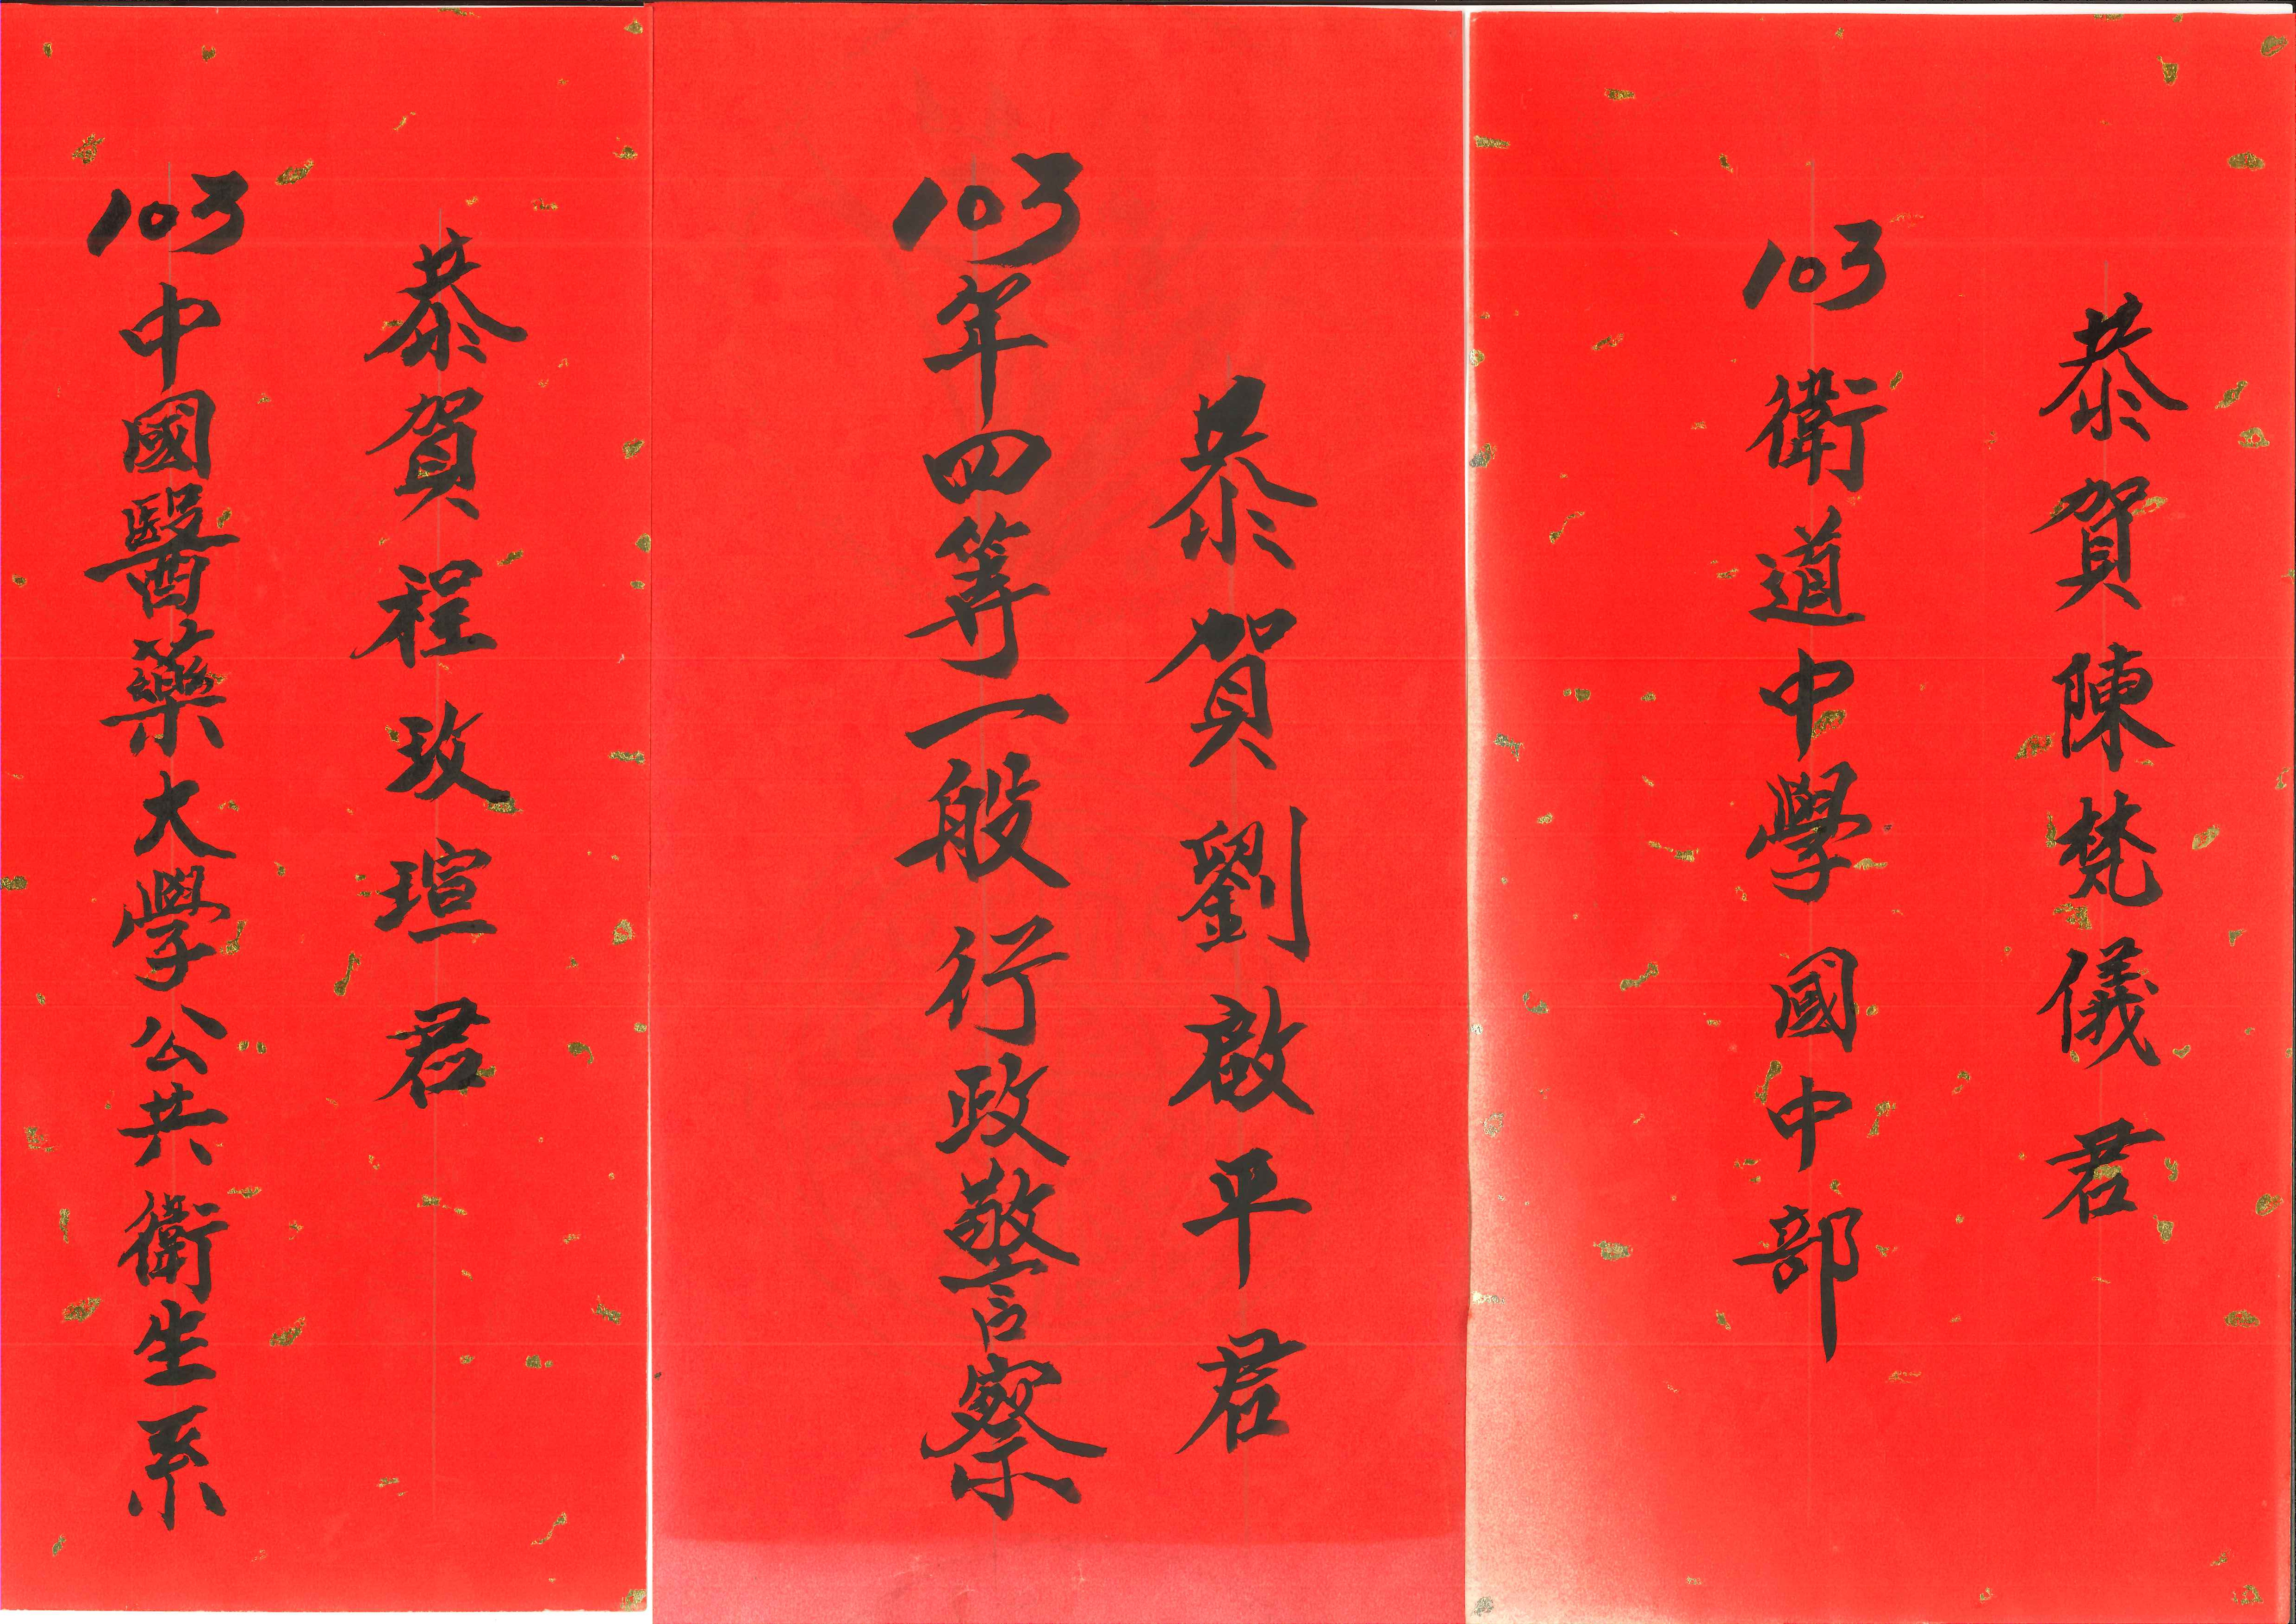 恭賀陳梵儀君
103衛道中學國中部
恭賀劉啟平君
103年四等一般行政警察
恭賀程玫瑄君
103中國醫藥大學公共衛生系